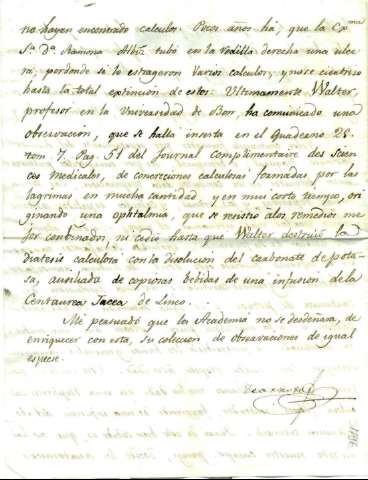 no hayen encontrado calculos. Pocos años há, que la Exma
Sa. Da. Ramona Albir tubó en la rodilla derecha una ulce
ra, por donde se le estrageron varios calculos, y no se cicatrizo
hasta la total extincion de estos. Ultimamente Walter,
profesor en la Universidad de Bon, ha comunicado una
observacion, que se halla inserta en el Quaderno 25.
tom. 7. Pag. 51 del Journal complimentaire des Scien
ces Medicales, de concreciones calculosas formadas por las
lagrimas en mucha cantidad y en muy corto tiempo, ori
ginando una ophtalmia, que se resistio a los remedios me
jor combinados, ni cedio hasta que Walter destruió la
diatesis calculosa con la disolucion del carbonate de pota-
sa, auxiliada de copiosas bebidas de una infusion de la
Centaurea Jacea de Lineo.
Me persuado que la Academia no se desdeñara, de
enriquecer con esta, su coleccion de observaciones de igual
especie.